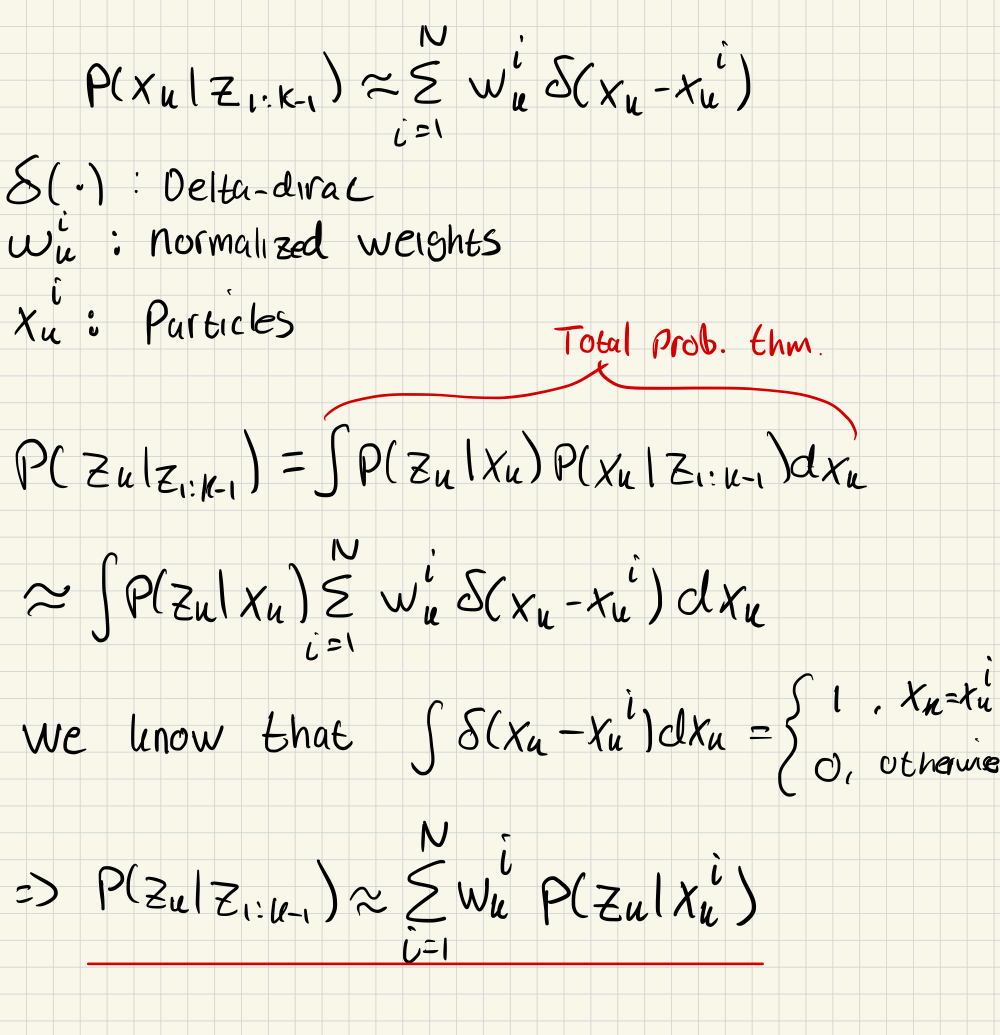 P(x_k | z_{1:k-1}) ≈ Σ_{i=1}^{N} w_k^i δ(x_k - x_k^i)
δ(·) : Delta-dirac
w_k^i : normalized weights
x_k^i : Particles
Total prob. thm.
P(z_k | z_{1:k-1}) = ∫ P(z_k | x_k) P(x_k | z_{1:k-1}) dx_k
≈ ∫ P(z_k | x_k) Σ_{i=1}^{N} w_k^i δ(x_k - x_k^i) dx_k
we know that ∫ δ(x_k - x_k^i) dx_k = { 1 , x_k = x_k^i
0, otherwise
=> P(z_k | z_{1:k-1}) ≈ Σ_{i=1}^{N} w_k^i P(z_k | x_k^i)